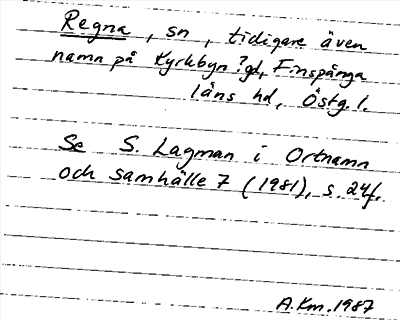 Regna, sn, tidigare även
namn på Kyrkbyn ?gd, Finspånga
läns hd, Östg. l.
Se S. Lagman i Ortnamn
och samhälle 7 (1981), s. 24f.
A.Km. 1987